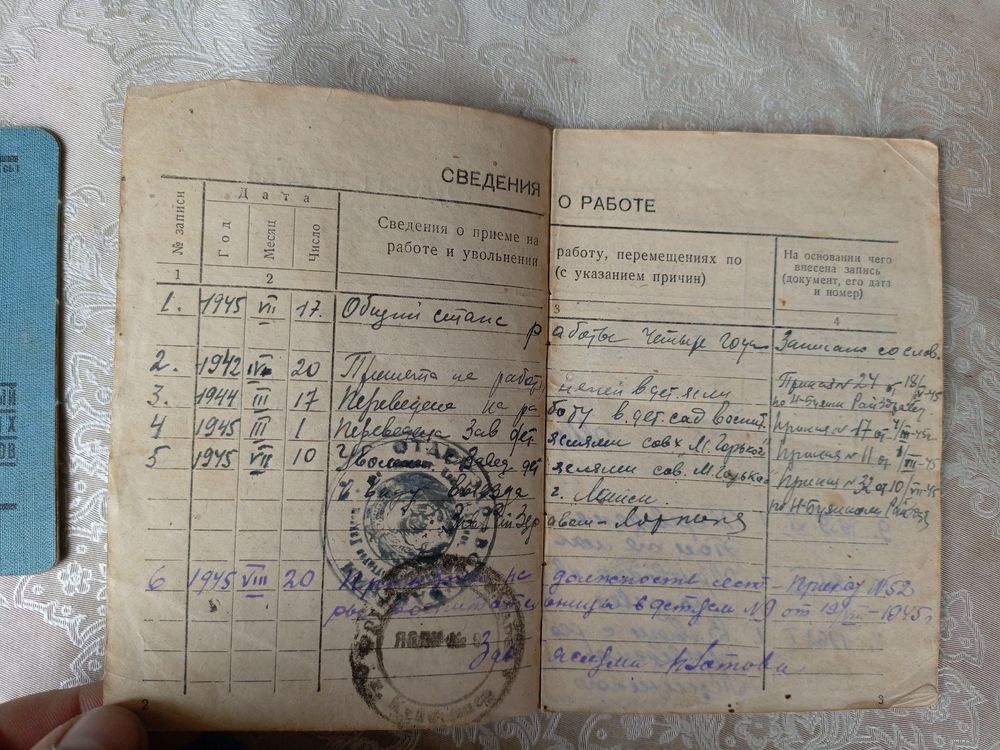 СВЕДЕНИЯ О РАБОТЕ
№ записи
Дата
Год
Месяц
Число
Сведения о приеме на работу, перемещениях по
работе и увольнении (с указанием причин)
На основании чего
внесена запись
(документ, его дата
и номер)
1 2 3 4
1. 1945 VII 17. Общий стаж работы четыре года Записано со слов.
2. 1942 20 Принята на работу в дет ясли Приказ № 24
3. 1944 III 17 Переведена на работу в дет. сад воспит. Приказ № 17 от
4 1945 III 1 Переведена Зав дет. яслями совх М. Горького Приказ № 11 от
5 1945 VII 10 Завед. дет яслями сов. М. Горького Приказ № 32 от 10/VII-45
в виду выезда г.
Зав. Рай Здравом
6 1945 VIII 20 на должность сест- Приказ №52
ры воспитательницы в детясли №9 от 19/VIII-1945г
Зав яслями
ЯСЛИ № 9
2
3